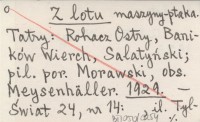 Z lotu maszyny-ptaka.
Tatry: Rohacz Ostry, Bani-
ków Wierch, Salatyński;
pil. por. Morawski, obs.
Meysenhäller. 1929. —
Świat 24, nr 14: il. Tyl-